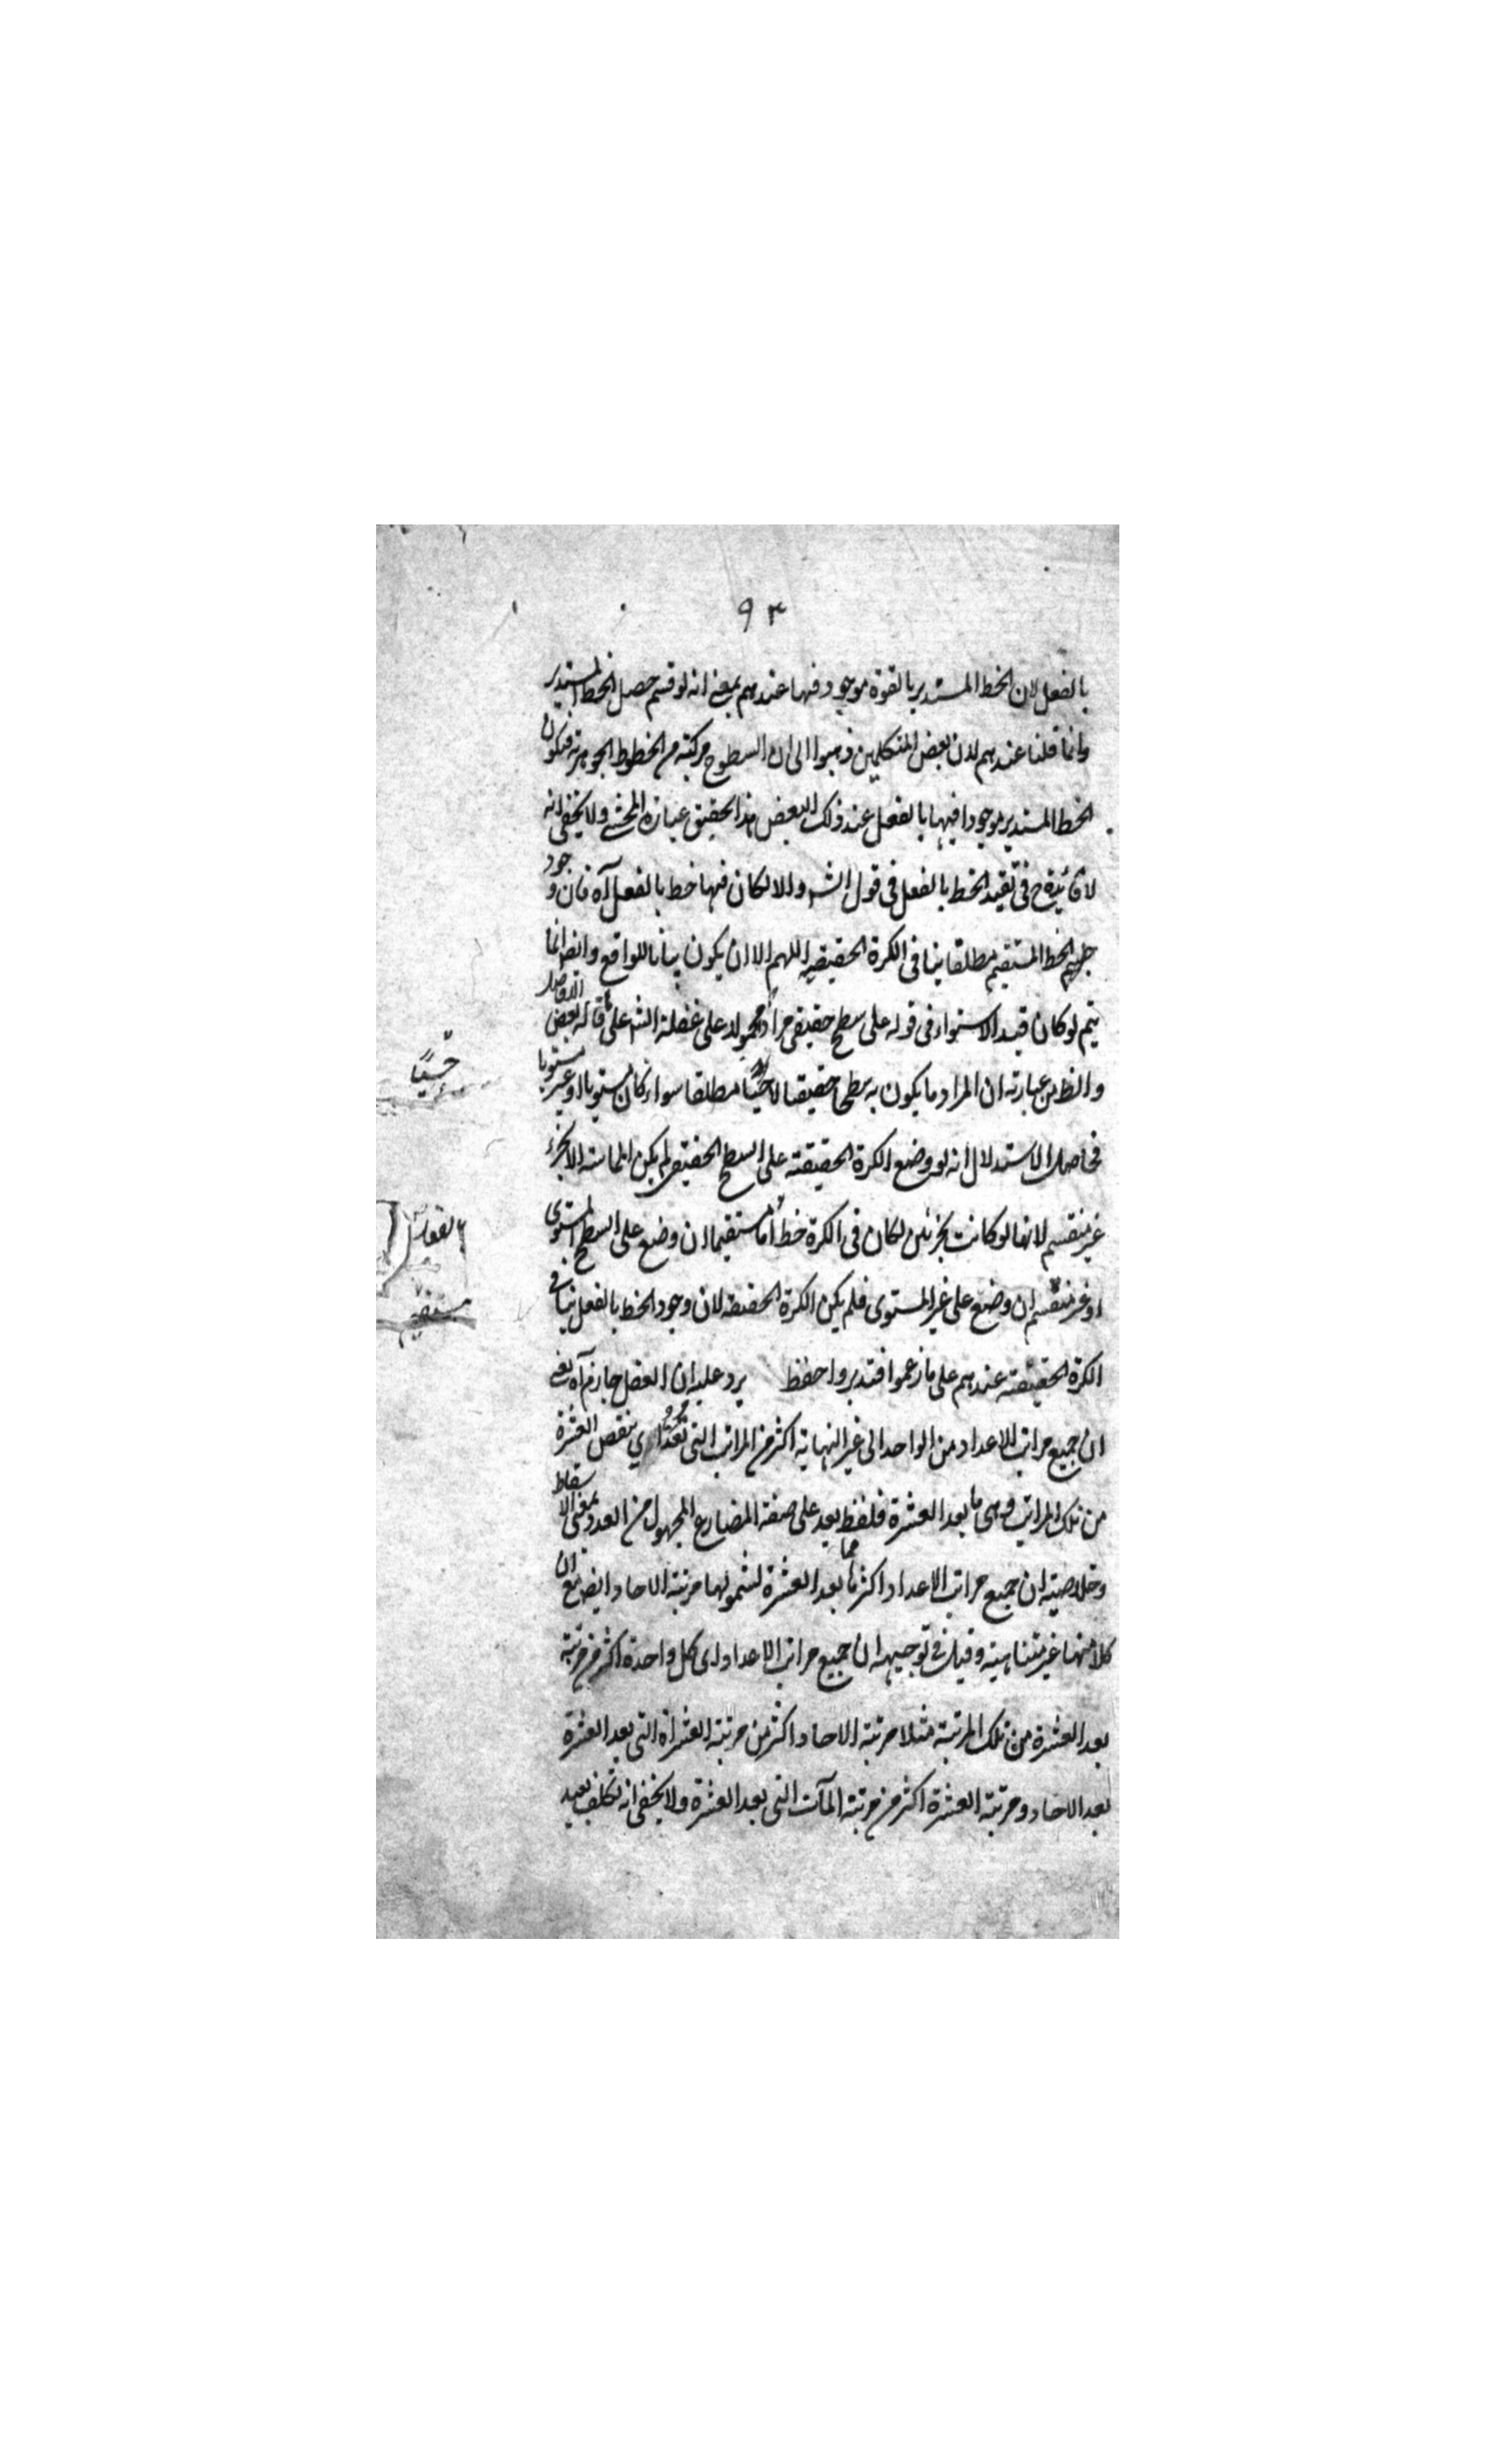 ٩٣
بالفعل لان الخط المستدير بالقوة موجود فيها عندهم بمعنى انه لو قسم حصل الخط المستدير
وانما قلنا عندهم لان بعض المتكلمين ذهبوا الى ان السطوح مركبة من الخطوط الجوهرية فيكون
الخط المستدير موجودا فيها بالفعل عند ذلك البعض هذا تحقيق عبارة المحشى ولا يخفى انه
لا فائدة ح فى تقييد الخط بالفعل فى قول الش والا لكان فيها خط بالفعل آه فان وجود
الخط المستقيم مطلقا ينافى الكرة الحقيقية اللهم الا ان يكون بيانا للواقع وايضا انما
يتم لو كان قيد الاستواء فى قوله على سطح حقيقى مرادا محمولا على غفلة الش على ما قاله بعض الافاضل
والظ من عبارته ان المراد ما يكون به سطحا حقيقيا لا حسيا مطلقا سواء كان مستويا او غير مستويا
فحاصل الاستدلال انه لو وضع الكرة الحقيقية على السطح الحقيقى لم يكن المماسة الا بجزء
غير منقسم لانها لو كانت بجزئين لكان فى الكرة خط اما مستقيما ان وضع على السطح المستوى
او غير مستقيم ان وضع على غير المستوى فلم يكن الكرة الحقيقية لان وجود الخط بالفعل ينافى
الكرة الحقيقية عندهم على ما زعموا فتدبر واحفظ يرد عليه ان العقل جازم آه يعنى
ان جميع مراتب الاعداد من الواحد الى غير النهاية اكثر من المراتب التى تعد اي ينقص العشرة
من تلك المراتب وهى ما بعد العشرة فلفظ يعد على صيغة المضارع المجهول من العد بمعنى الاسقاط
وخلاصته ان جميع مراتب الاعداد اكثر مما بعد العشرة لشمولها مرتبة الاحاد ايضا مع ان
كلا منها غير متناهية وقيل فى توجيهه ان جميع مراتب الاعداد اى كل واحدة اكثر من مرتبة
بعد العشرة من تلك المرتبة مثلا مرتبة الاحاد اكثر من مرتبة العشرات التى بعد العشرة
بعد الاحاد ومرتبة العشرة اكثر من مرتبة المآت التى بعد العشرة ولا يخفى انه تكلف بعيد
حسيا
مستقيم